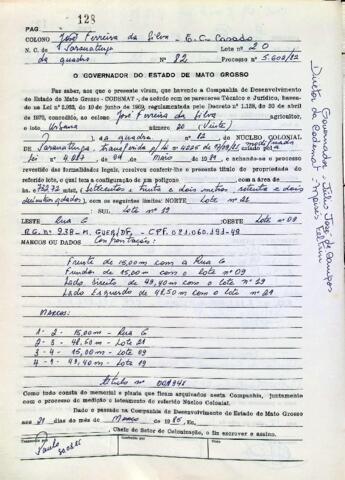 128
PAG
COLONO José Ferreira da Silva - E.C. Casado
N. C. de Sararutuga Lote nº 20
da quadra Nº 82 Processo nº 5.602/82
O GOVERNADOR DO ESTADO DE MATO GROSSO
Faz saber, aos que a presente virem, que havendo a Companhia de Desenvolvimento
do Estado de Mato Grosso - CODEMAT -, de acôrdo com os pareceres Técnico e Jurídico, basea-
da na Lei 2.083, de 10 de junho de 1969, regulamentada pelo Decreto 1.128, de 30 de abril
de 1970, concedido, ao colono José Ferreira da Silva agricultor,
o lote Urbano número 20 (Vinte)
na quadra 82 NÚCLEO COLONIAL
de transferida p/ modificada
lei nº de de Maio de e achando-se o processo
revestido das formalidades legais, resolve conferir-lhe o presente título de propriedade do
referido lote, o qual tem a configuração de um polígono com a área de
732,72 setecentos e trinta e dois metros, setenta e dois
com os seguintes limites: NORTE Lote 21
SUL Lote 19
LESTE Rua G OESTE Lote 09
R.G. nº 938-M. GUER/DF - CPF. 021.060.191-49
MARCOS OU DADOS Confrontações:
Frente de 15,00m com a Rua G
Fundos de 15,00m com o Lote nº 09
Lado Direito de 49,40m com o Lote nº 19
Lado Esquerdo de 48,50m com o Lote nº 21
MARCOS:
1-2 - 15,00m - Rua G
2-3 - 48,50m - Lote 21
3-4 - 15,00m - Lote 09
4-1 - 49,40m - Lote 19
título nº 001948
Como tudo consta do memorial e planta que ficam arquivados nesta Companhia, juntamente
com o processo de medição e loteamento do referido Núcleo Colonial.
Dado e passado na Companhia de Desenvolvimento do Estado de Mato Grosso
aos 21 dias do mês de Março de 1985, Eu,
, Chefe do Setor de Colonização, o fiz escrever e assino.
TRANSCRITO
Paulo
Governador Júlio José de Campos
Diretor da Codemat -